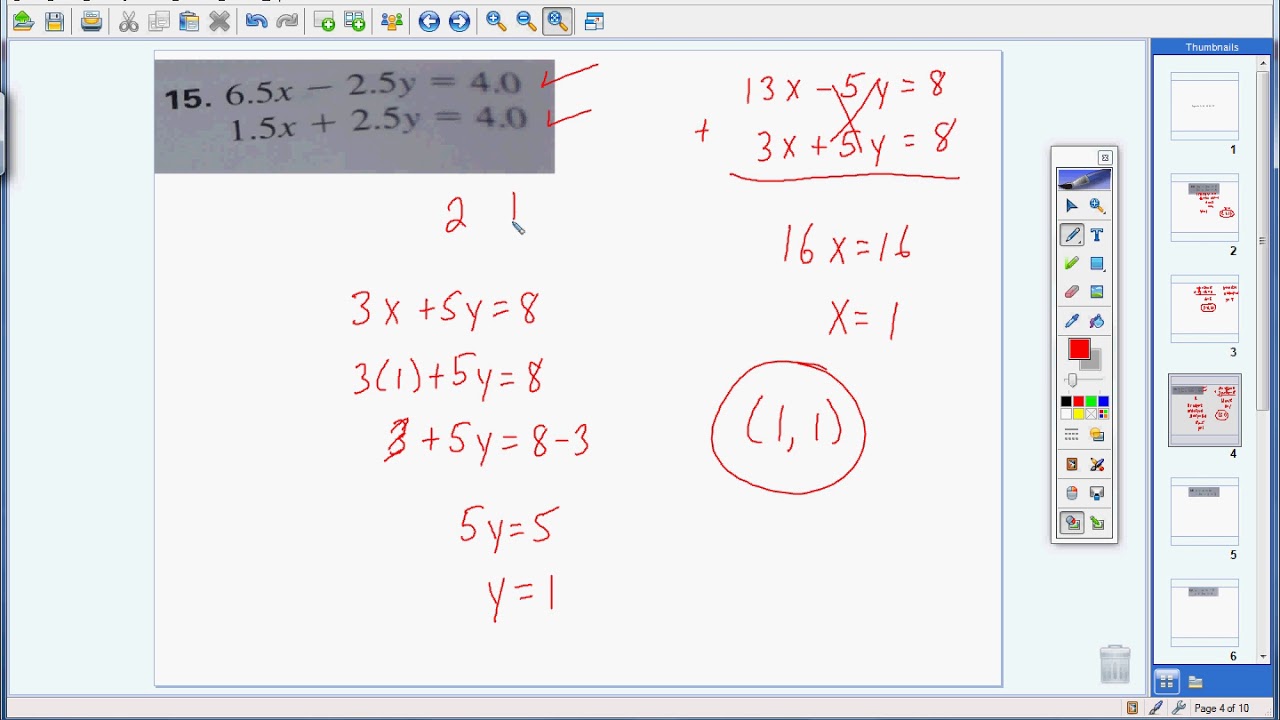 15. 6.5x − 2.5y = 4.0
1.5x + 2.5y = 4.0
13x − 5y = 8
+ 3x + 5y = 8
16x = 16
x = 1
(1, 1)
2 1
3x + 5y = 8
3(1) + 5y = 8
3 + 5y = 8 − 3
5y = 5
y = 1
Thumbnails
1
2
3
4
5
6
Page 4 of 10